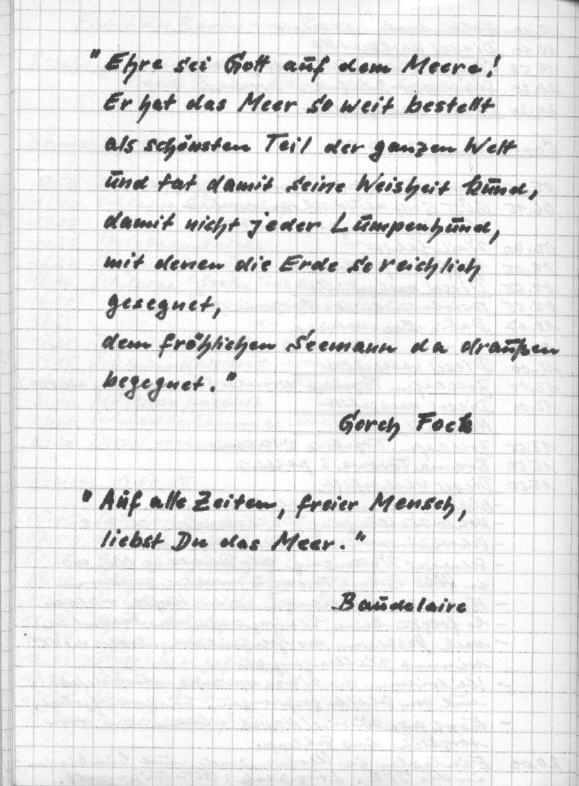 "Ehre sei Gott auf dem Meere!
Er hat das Meer so weit bestellt
als schönsten Teil der ganzen Welt
und tat damit seine Weisheit kund,
damit nicht jeder Lumpenhund,
mit denen die Erde so reichlich
gesegnet,
dem fröhlichen Seemann da draußen
begegnet."
Gorch Fock
"Auf alle Zeiten, freier Mensch,
liebst Du das Meer."
Baudelaire